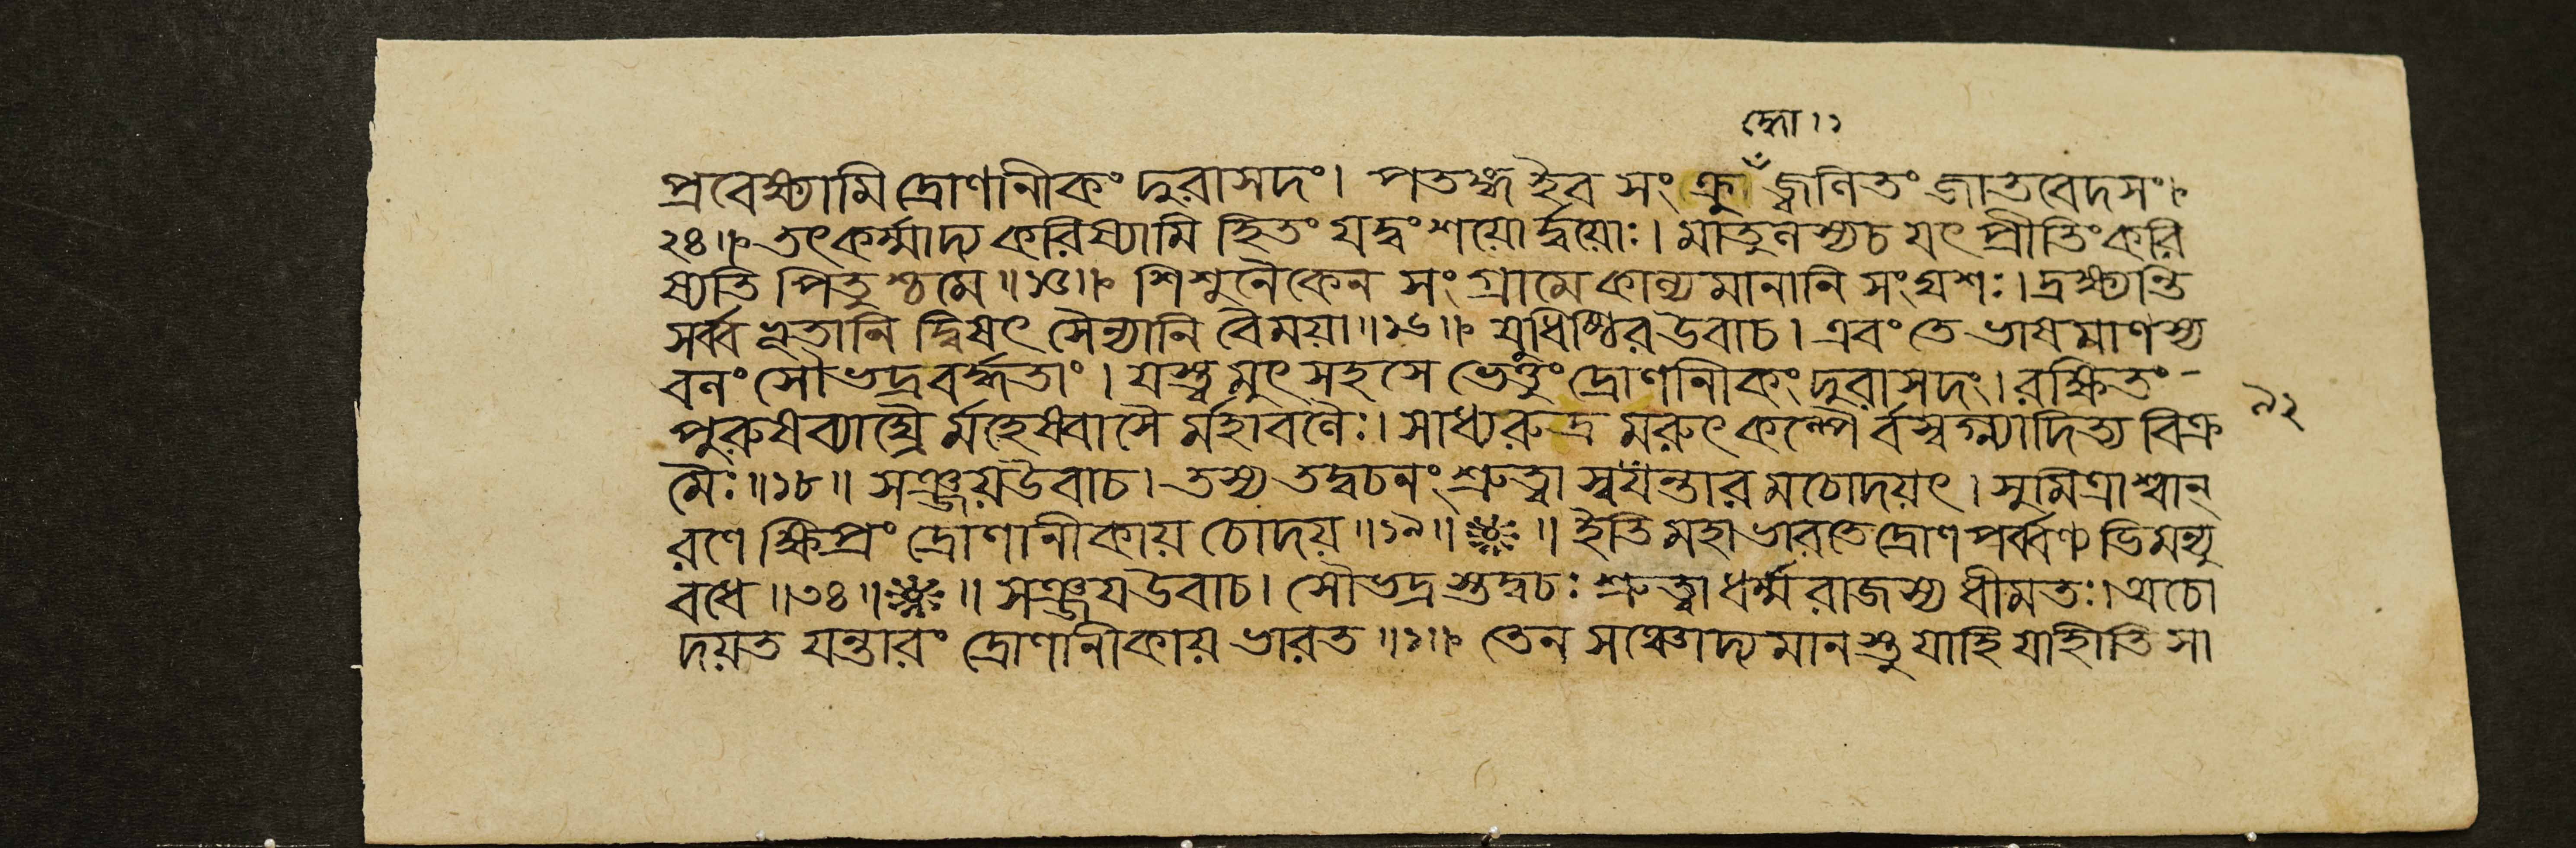 ন্ধো।১
প্রবেক্ষ্যামি দ্রোণানীকং দুরাসদং। পতঙ্গ ইব সংক্রু জ্বলিতং জাতবেদসং।
২৪॥ তৎকর্ম্মাদ্য করিষ্যামি হিতং যদ্বংশয়োর্দ্বয়োঃ। মাতুলস্যচ যৎ প্রীতিং করি
ষ্যতি পিতুশ্চমে॥১৫॥ শিশুনৈকেন সংগ্রামে কাল্যমানানি সংঘশঃ। দ্রক্ষ্যন্তি
সর্ব্বভূতানি দ্বিষৎ সৈন্যানি বৈময়া॥১৬॥ যুধিষ্ঠিরউবাচ। এবং তে ভাষমাণস্য
বলং সৌভদ্রবর্দ্ধতাং। যস্ত্বমুৎসহসে ভেত্তুং দ্রোণানীকং দুরাসদং। রক্ষিতং
পুরুষব্যাঘ্রৈর্মহেষ্বাসৈর্মহাবলৈঃ। সাধ্যরুদ্র মরুৎকল্পৈর্বস্বগ্ন্যাদিত্য বিক্র
মৈঃ॥১৮॥ সঞ্জয়উবাচ। তস্য তদ্বচনং শ্রুত্বা স্বযন্তারমচোদয়ৎ। সুমিত্রাশ্বান্
রণে ক্ষিপ্রং দ্রোণানীকায় চোদয়॥১৯॥ ॥ ইতি মহাভারতে দ্রোণপর্ব্বণ্যভিমন্যু
বধে॥৩৪॥ ॥ সঞ্জয়উবাচ। সৌভদ্রস্তদ্বচঃ শ্রুত্বা ধর্ম্মরাজস্য ধীমতঃ। অচো
দয়ত যন্তারং দ্রোণানীকায় ভারত॥১॥ তেন সঞ্চোদ্যমানস্তু যাহি যাহীতি সা
৯২